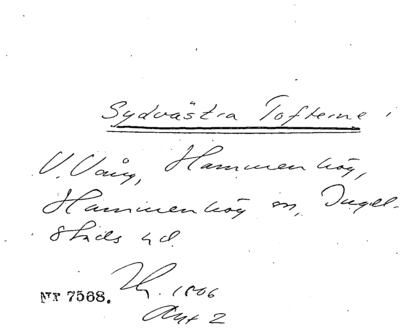 Sydvästra Tofterne i
V. Vång, Hammenhög,
Hammenhög sn, Ingel-
stads hd.
Nr 7568.
1806
Akt 2